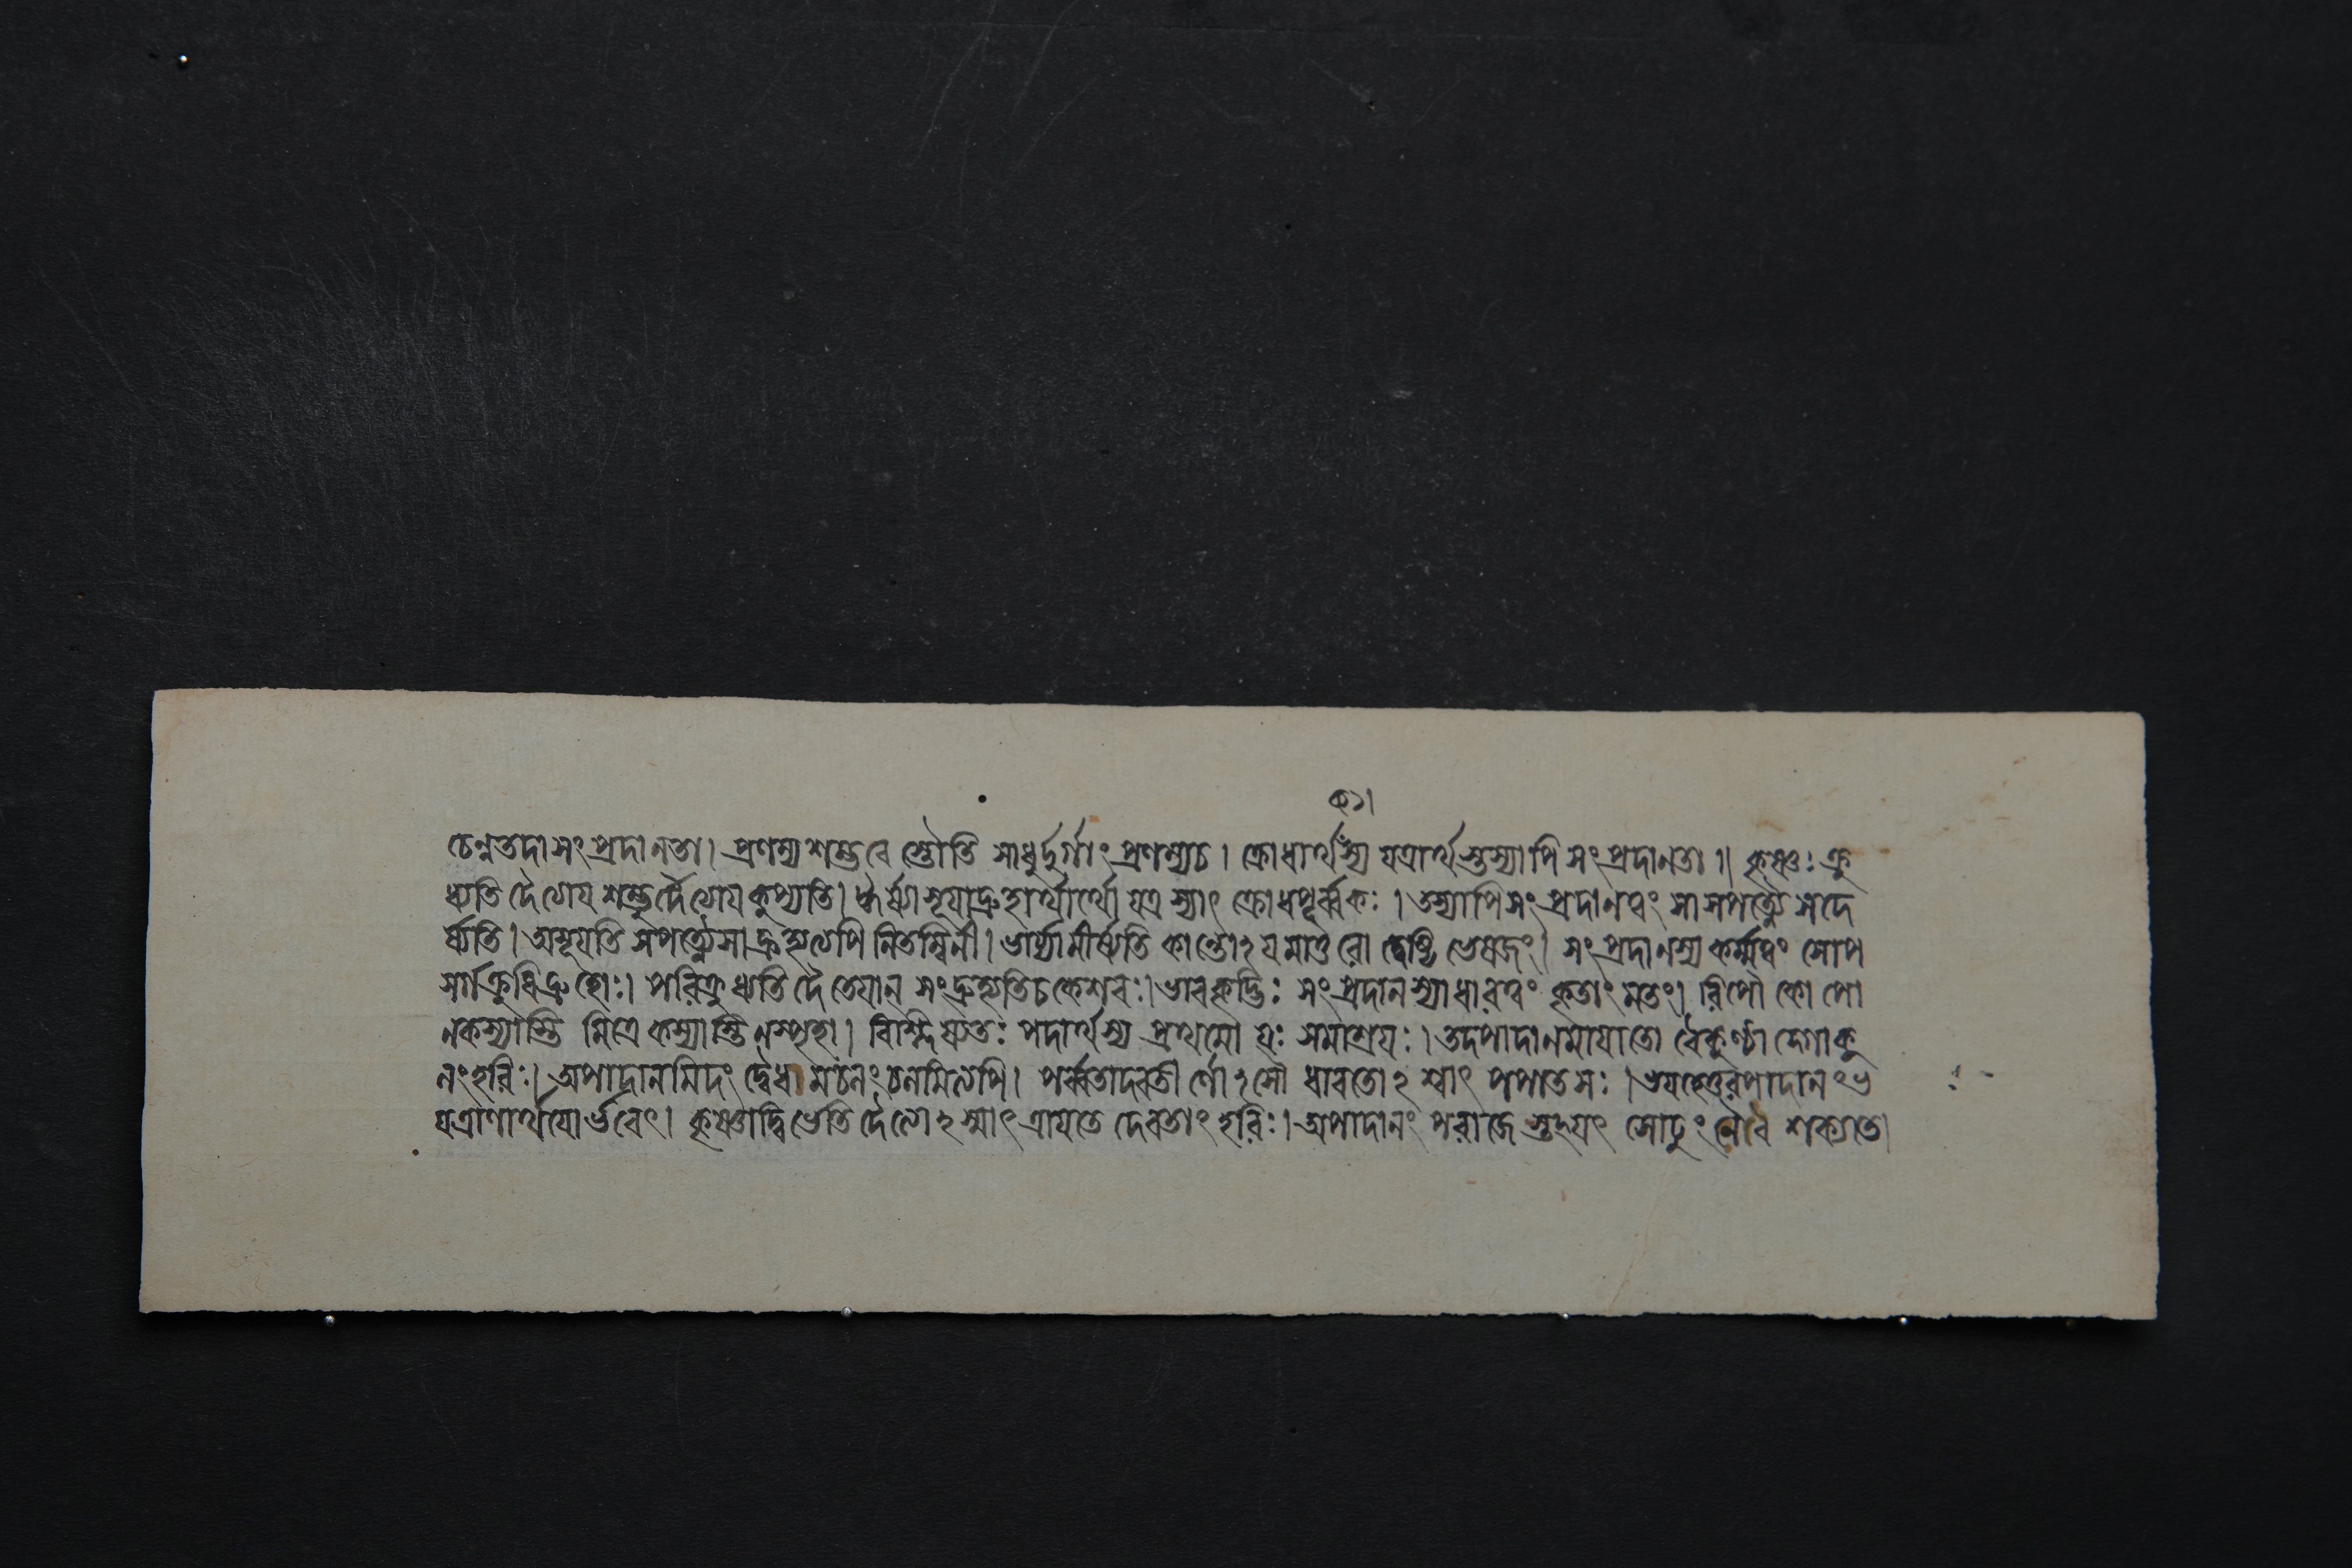 ৫১।
চেন্নতদা সংপ্রদানতা। প্রণম্য শম্ভবে স্তৌতি সাধুর্দুর্গাং প্রণম্যচ। ক্রোধার্ত্থস্য যত্রার্ত্থস্তস্যাপি সংপ্রদানতা॥ কৃষ্ণঃ ক্রু
ধ্যতি দৈত্যেয শম্ভুর্দৈত্যেয কুপ্যতি। ঈর্ষ্যাসূযাদ্রুহার্ত্থার্ত্থো যত্র স্যাৎ ক্রোধপূর্ব্বকঃ। তস্যাপি সংপ্রদানত্বং সা সপত্ন্যৈ সদে
র্ষ্যতি। অসূযতি সপত্ন্যৈসা দ্রুহ্যত্যপি নিতম্বিনী। ভার্য্যামীর্ষ্যতি কান্তোঽযমাতুরো দ্বেষ্টি ভেষজং। সংপ্রদানস্য কর্ম্মত্বং সোপ
সর্গক্রুধিদ্রুহোঃ। পরিক্রুধ্যতি দৈতেযান্ সংদ্রুহ্যতিচ কেশবঃ। ভাবক্লদ্ভিঃ সংপ্রদানস্যাধারত্বং কৃতাং মতং। রিপৌ কোপো
নকস্যাস্তি মিত্রে কস্যাস্তি নস্পৃহা। বিশ্লিষ্যতঃ পদার্ত্থস্য প্রথমো যঃ সমাশ্রযঃ। তদপাদানমাযাতো বৈকুণ্ঠাদ্গোকু
নংহরিঃ। অপাদানমিদং দ্বেধা মচনং চনমিত্যপি। পর্ব্বতাদবতীর্ণোঽসৌ ধাবতোঽশ্বাৎ পপাতসঃ। ভযহেতুরপাদানং ভ
যত্রাণার্ত্থযোর্ভবেৎ। কৃষ্ণাদ্বিভেতি দৈত্যোঽস্মাৎ ত্রাযতে দেবতাং হরিঃ। অপাদানং পরাজেস্তুযৎ সোঢ়ুং নৈব শক্যতে।